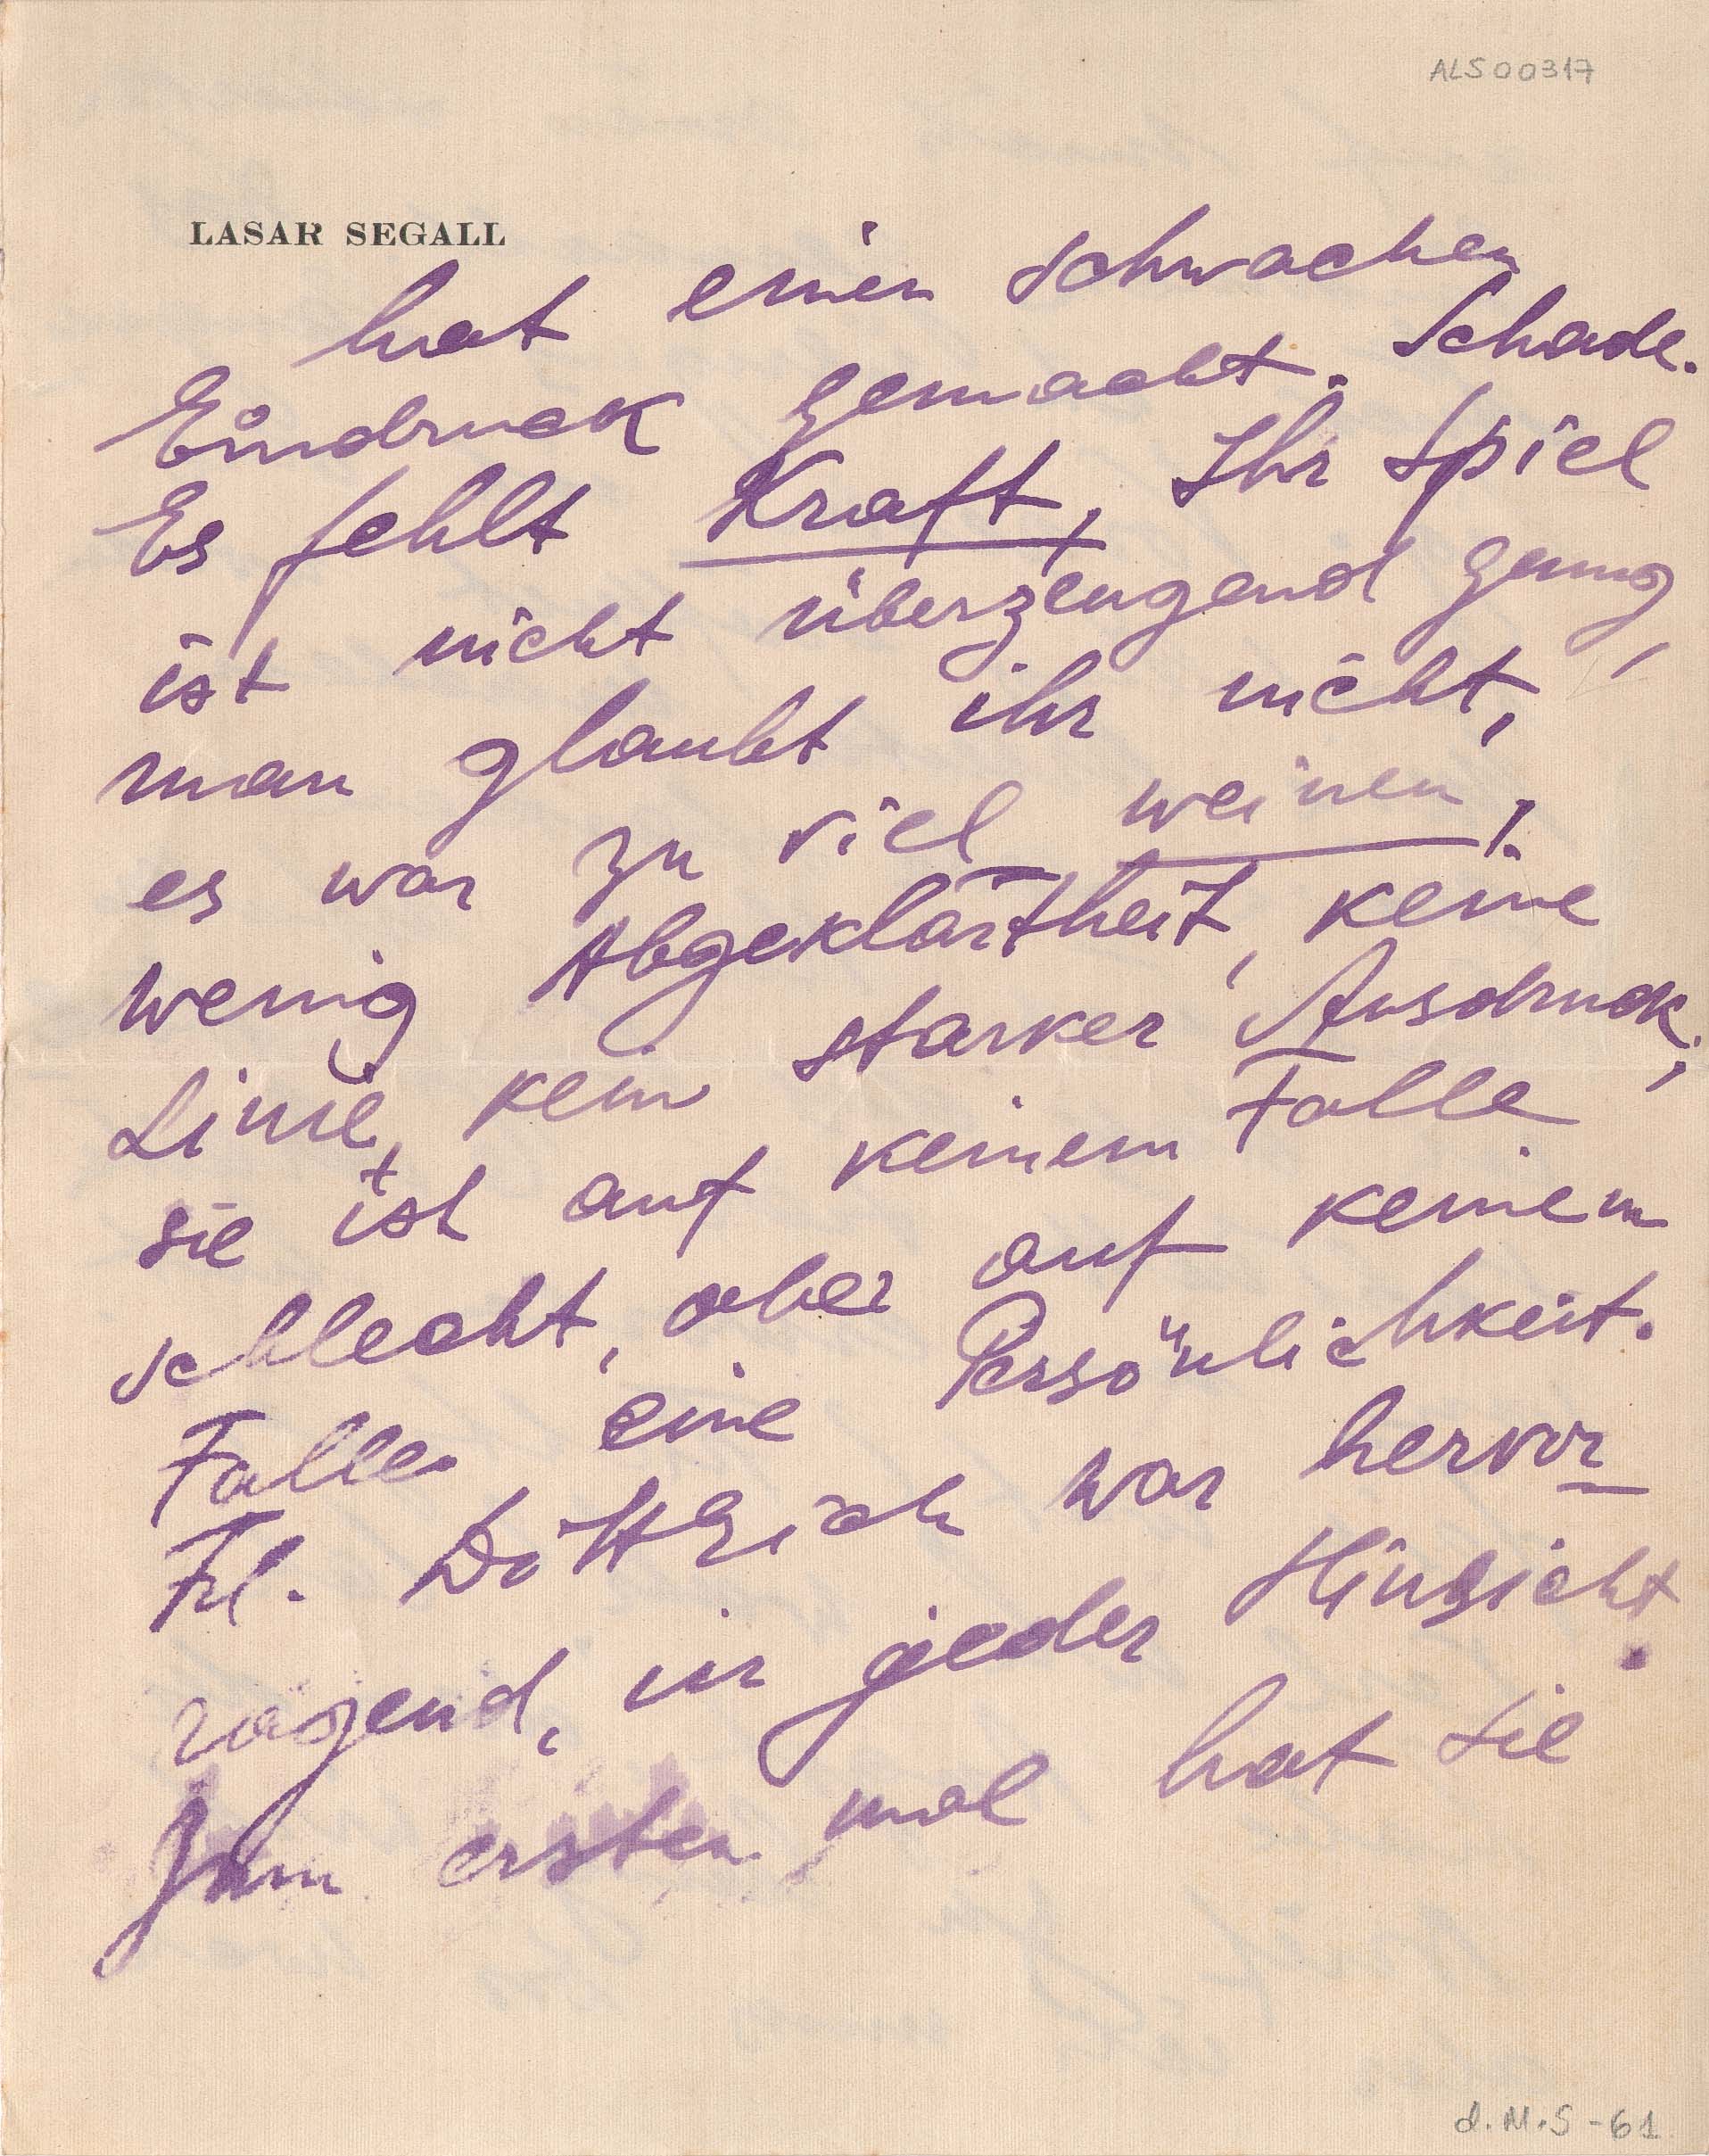 ALS00317
LASAR SEGALL
hat einen schwachen
Eindruck gemacht. Schade.
Es fehlt Kraft, Ihr Spiel
ist nicht überzeugend genug,
man glaubt ihr nicht,
es war zu viel weinen,
wenig Abgeklärtheit, keine
Linie, kein starker Ausdruck,
sie ist auf keinem Falle
schlecht, aber auf keinem
Falle eine Persönlichkeit.
Frl. Döttrich war hervor-
ragend, in jeder Hinsicht.
Zum ersten mal hat sie
d.M.S-61